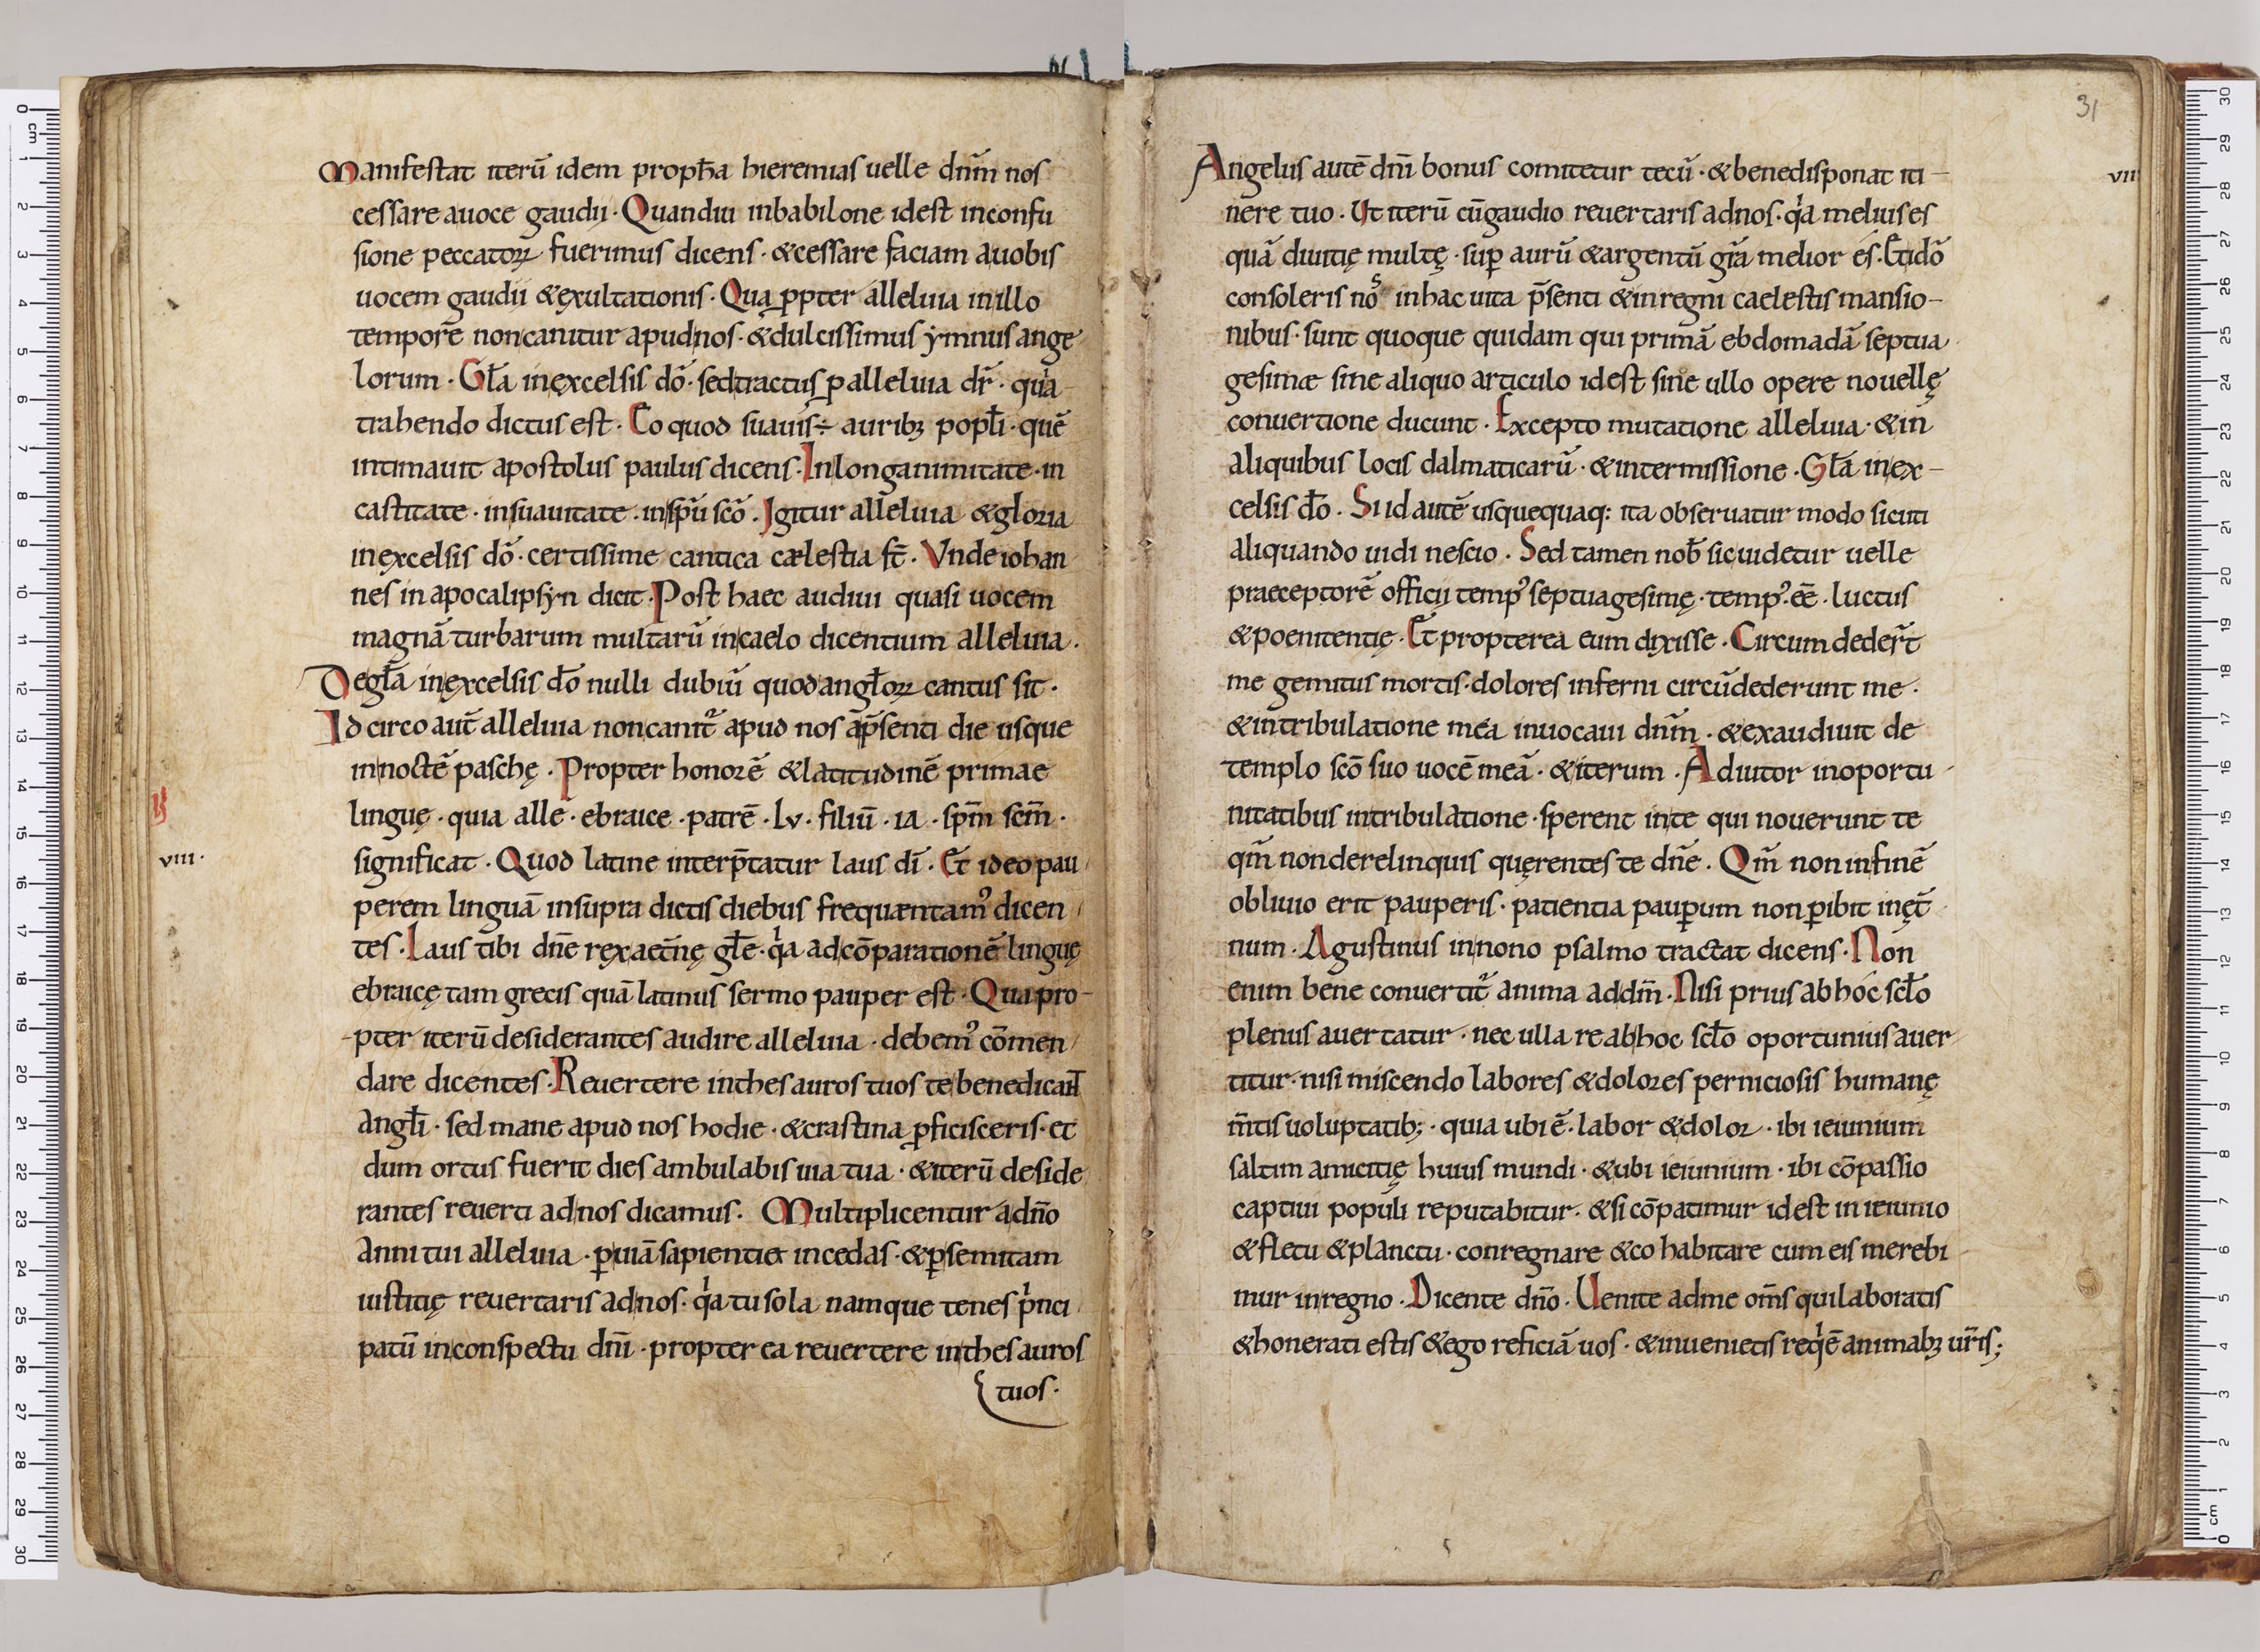 Manifestat iterū idem proph̄a hieremias uelle dn̄m nos
cessare auoce gaudii · Quandiu inbabilone idest inconfu
sione peccatoꝝ fuerimus dicens · &cessare faciam auobis
uocem gaudii &exultationis · Qua ꝓpter alleluia inillo
tempore noncanitur apudnos · &dulcissimus ymnus ange
lorum · Gl̄a inexcelsis dō · sedtractus ꝑ alleluia dr̄ · quia
trahendo dictus est · Eo quod suauis ÷ auribꝫ popl̄i · quē
intimauit apostolus paulus dicens · Inlonganimitate · in
castitate · insuauitate · inspū scō · Igitur alleluia &gloria
inexcelsis dō · certissime cantica cælestia st̄ · Vnde iohan
nes in apocalipsyn dicit · Post haec audiui quasi uocem
magnā turbarum multarū incaelo dicentium alleluia ·
Degl̄a inexcelsis dō nulli dubiū quod angl̄oꝝ cantus sit ·
Idcirco aut̄ alleluia noncanit᷑ apud nos ap̄senti die usque
innoctē paschę · Propter honorē &latitudinē primae
linguę · quia alle · ebraice · patrē · lv · filiū · ia · sp̄m sc̄m ·
viii ·
significat · Quod latine interp̄tatur laus dī · Et ideo pau
perem linguā insupra dictis diebus frequæntamꝰ dicen
tes · Laus tibi dn̄e rex aet̄nę gl̄e · qͥa adcōparationē linguę
ebraicę tam grecis quā latinus sermo pauper est · Quapro-
-pter iterū desiderantes audire alleluia · debemꝰ cōmen
dare dicentes · Reuertere inthesauros tuos te benedicant
angl̄i · sed mane apud nos hodie · &crastina ꝓficisceris · et
dum ortus fuerit dies ambulabis uia tua · &iterū deside
rantes reuerti adnos dicamus · Multiplicentur adn̄o
anni tui alleluia · ꝑ uiā sapientię incedas · &ꝑ semitam
iustitię reuertaris adnos · qͥa tu sola namque tenes pͥnci
patū inconspectu dn̄i · propter ea reuertere inthesauros
tuos ·
31
Angelus autē dn̄i bonus comitetur tecū · &benedisponat iti-
vii
nere tuo · Ut iterū cūgaudio reuertaris adnos · qͥa melius es
quā diuitię multę · suꝑ aurū &argentū gr̄a melior es · Etidō
consoleris noˢ inhac uita p̄senti &inregni caelestis mansio-
nibus · sunt quoque quidam qui primā ebdomadā septua
gesimæ sine aliquo articulo idest sine ullo opere nouellę
conuertione ducunt · Excepto mutatione alleluia · &in
aliquibus locis dalmaticarū · &intermissione · Gl̄a inex-
celsis dō · Si id autē usquequaq: ita obseruatur modo sicuti
aliquando uidi nescio · Sed tamen nob̄ sic uidetur uelle
praeceptorē officii tempꝰ septuagesimę · tempꝰ · eē · luctus
&poenitentię · Et propterea eum dixisse · Circumdeder̄t
me gemitus mortis · dolores inferni circūdederunt me ·
&intribulatione mea inuocaui dn̄m · &exaudiuit de
templo scō suo uocē meā · &iterum · Adiutor inoportu
nitatibus intribulatione · sperent inte qui nouerunt te
qm̄ nonderelinquis quęrentes te dn̄e · Qm̄ non infinē
obliuio erit pauperis · patientia pauꝑum non ꝑibit inęt̄
num · Agustinus innono psalmo tractat dicens · Non
enim bene conuertit᷑ anima addm̄ · Nisi prius ab hoc scl̄o
plenus auertatur · nec ulla re abhoc scl̄o oportunius auer
titur · nisi miscendo labores &dolores perniciosis humanę
m̄tis uoluptatib; · quia ubi ē · labor &dolor · ibi ieiunium
saltim amicitię huius mundi · &ubi ieiunium · ibi cōpassio
captiui populi reputabitur · &si cōpatimur idest in ieiunio
&fletu &planctu · conregnare &cohabitare cum eis merebi
mur inregno · Dicente dn̄o · Uenite adme om̄s quilaboratis
&honerati estis &ego reficiā uos · &inuenietis reqͥē animabꝫ ur̄is;